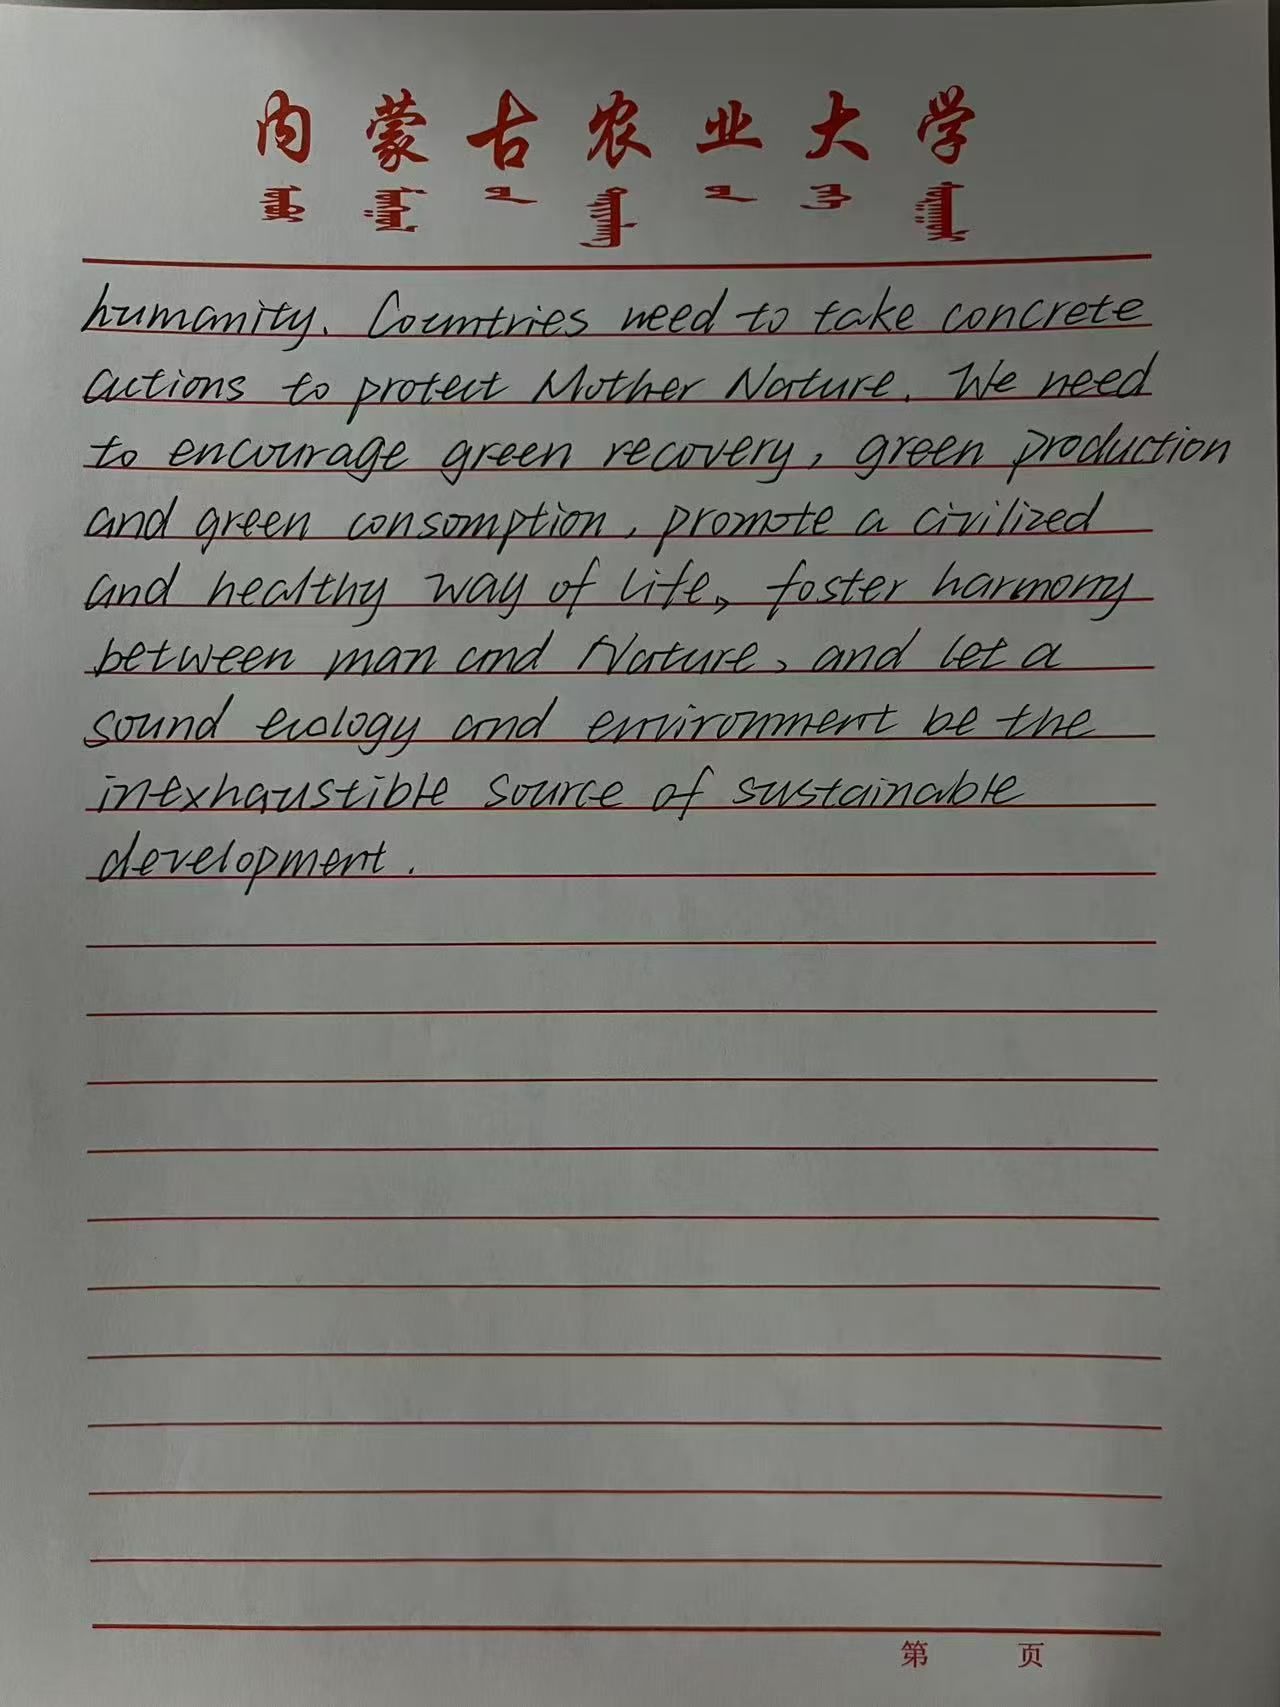 内蒙古农业大学
humanity. Countries need to take concrete
actions to protect Mother Nature. We need
to encourage green recovery, green production
and green consomption, promote a civilized
and healthy way of life, foster harmony
between man and Nature, and let a
sound ecology and environment be the
inexhaustible source of sustainable
development.
第 页